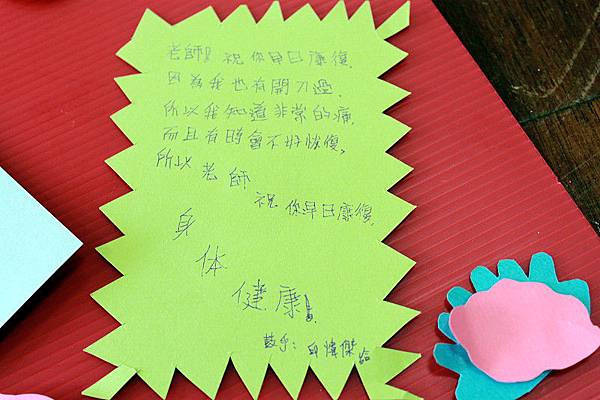 老師! 祝你早日康復.
因為我也有開刀過.
所以我知道非常的痛.
而且有時會不好恢復。
所以老師
祝你早日康復.
身
体
健康!
鼓手: 邱